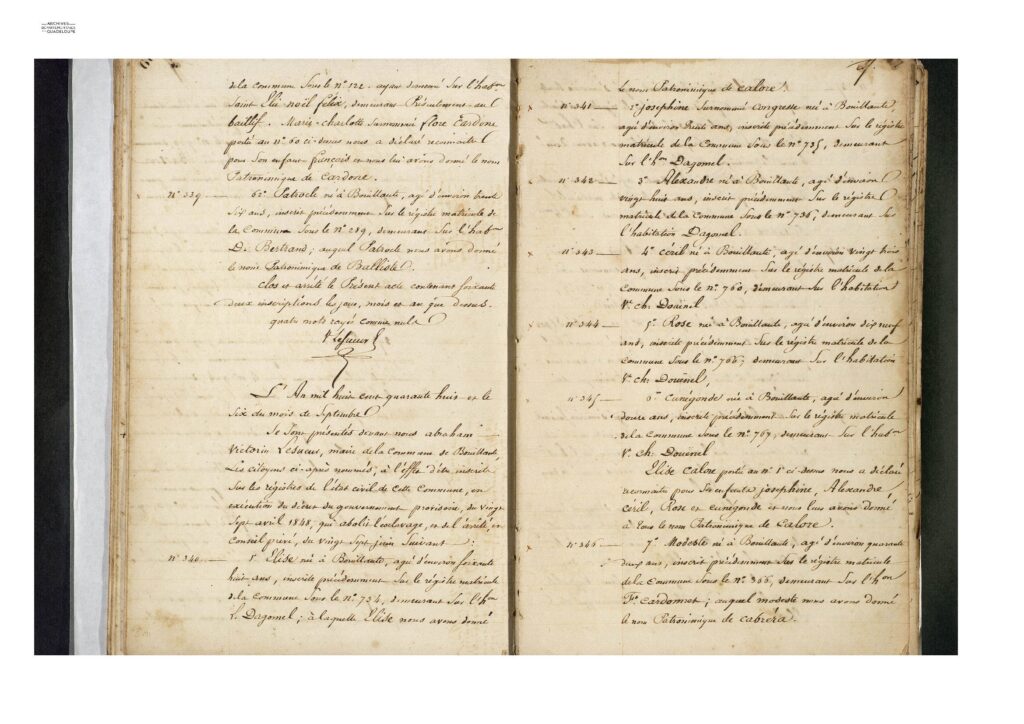 ARCHIVES
DÉPARTEMENTALES
GUADELOUPE
de la Commune Sous le n° 122. ayant demeuré Sur l'hab.on
Saint Elu noël félix, demeurant Présentement au
baillif. Marie-charlotte Surnommée flore Cardone
portée au n° 60 ci-dessus nous a déclaré reconnaître
pour Son enfant françois et nous lui avons donné le nom
Patronimique de Cardone.
n° 339 62° Patrocle né à Bouillante, agé d'environ trente
Six ans, inscrit précédemment Sur le régistre matricule de
la Commune Sous le n° 289, demeurant Sur l'hab.on
D. Bertrand; auquel Patrocle nous avons donné
le nom Patronimique de Balliste.
Clos et arrêté le Présent acte contenant Soixante
deux inscriptions les jour, mois et an que dessus.
quatre mots rayés comme nuls
V. Lesueur
L'An mil huit cent quarante huit et le
Six du mois de Septembre
Se Sont présentés devant nous abraham
Victorin Lesueur, maire de la Commune de Bouillante,
Les citoyens ci-après nommés, à l'effet d'être inscrits
Sur les régistres de l'état civil de cette Commune, en
exécution du décret du gouvernement provisoire, du vingt
Sept avril 1848, qui abolit l'esclavage, et de l'arrêté, en
Conseil privé, du vingt Sept juin Suivant:
n° 340 1° Elise né à Bouillante, agé d'environ Soixante
huit ans, inscrite précédemment Sur le régistre matricule
de la Commune Sous le n° 734, demeurant Sur l'h.on
V. Dagomel; à laquelle Elise nous avons donné
le nom Patronimique de Calore.
n° 341 2° joséphine Surnommée Congresse né à Bouillante,
agé d'environ trente ans, inscrite précédemment Sur le régistre
matricule de la Commune Sous le n° 735, demeurant
Sur l'h.on Dagomel.
n° 342 3° Alexandre né à Bouillante, agé d'environ
vingt huit ans, inscrit précédemment Sur le régistre
matricule de la Commune Sous le n° 736, demeurant Sur
l'habitation Dagomel.
n° 343 4° Céril né à Bouillante, agé d'environ vingt trois
ans, inscrit précédemment Sur le régistre matricule de la
Commune Sous le n° 760, demeurant Sur l'habitation
V.e ch. Douinel
n° 344 5° Rose né à Bouillante, agé d'environ dix neuf
ans, inscrite précédemment Sur le régistre matricule de la
Commune Sous le n° 766; demeurant Sur l'habitation
V.e ch. Douinel,
n° 345 6° Cunégonde né à Bouillante, agé d'environ
douze ans, inscrite précédemment Sur le régistre matricule
de la Commune Sous le n° 767, demeurant Sur l'hab.on
V.e ch. Douinel
Elise Calore portée au n° 1° ci-dessus nous a déclaré
reconnaître pour Ses enfants joséphine, Alexandre,
Céril, Rose et Cunégonde et nous leur avons donné
à tous le nom Patronimique de Calore.
n° 346 7° Modeste né à Bouillante, agé d'environ quarante
deux ans, inscrit précédemment Sur le régistre matricule
de la Commune Sous le n° 366, demeurant Sur l'h.on
Cardonnet; auquel modeste nous avons donné
le nom Patronimique de Cabréra.